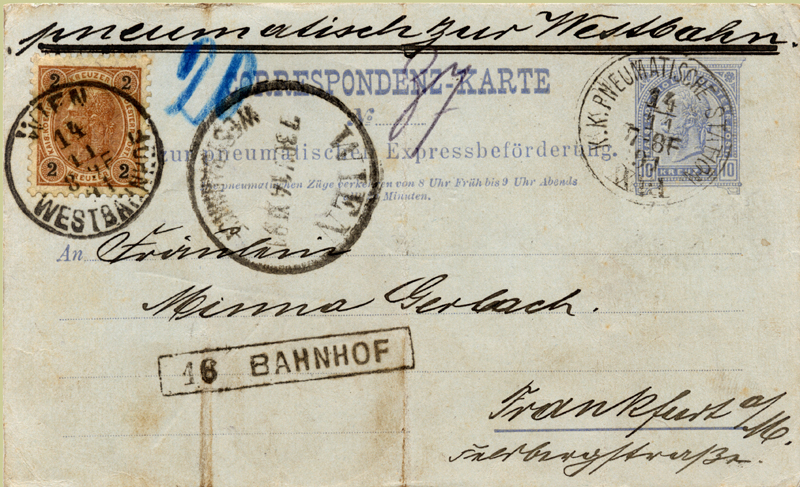 pneumatisch zur Westbahn.
CORRESPONDENZ-KARTE
20
37
№
zur pneumatischen Expressbeförderung.
pneumatischen Züge verkehren von 8 Uhr Früh bis 9 Uhr Abends
Minuten.
2 KREUZER 2
2 2
WIEN
14
11
WESTBAHNHOF
WIEN
WESTBAHNHOF
K.K. PNEUMATISCHE STATION
14
11
10 KREUZER 10
An Fräulein
Minna Gerlach.
46 BAHNHOF
Frankfurt a/M.
Feldbergstraße.